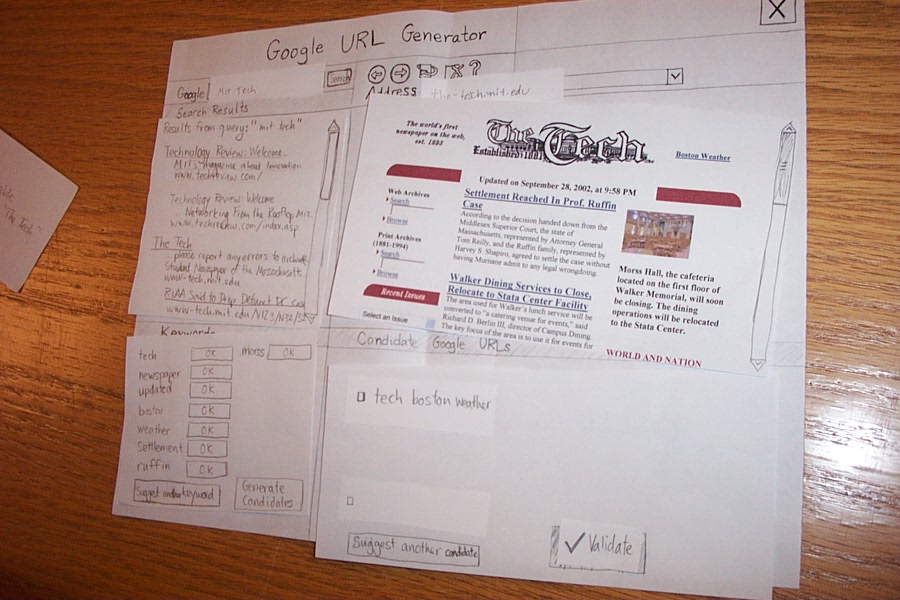 Google URL Generator
X
Google Mit Tech Search
?
Address the-tech.mit.edu
Search Results
Results from query: "mit tech"
Technology Review: Welcome.
MIT's magazine about Innovation
www.techreview.com/
Technology Review: Welcome
... Networking From the Rooftop. MIT.
www.techreview.com/index.asp
The Tech
... please report any errors to
Student Newspaper of the Massachusetts
www-tech.mit.edu
RIAA Said to
www-tech.mit.edu/V123/N32/
The world's first
newspaper on the web,
est. 1893
The Tech
Established 1881
Boston Weather
Updated on September 28, 2002, at 9:58 PM
Web Archives
Search
Browse
Print Archives
(1881-1994)
Search
Browse
Recent Issues
Select an Issue
Settlement Reached In Prof. Ruffin
Case
According to the decision handed down from the
Middlesex Superior Court, the state of
Massachusetts, represented by Attorney General
Tom Reilly, and the Ruffin family, represented by
Harvey S. Shapiro, agreed to settle the case without
having Murnane admit to any legal wrongdoing.
Walker Dining Services to Close,
Relocate to Stata Center Facility
The area used for Walker's lunch service will be
converted to "a catering venue for events," said
Richard D. Berlin III, director of Campus Dining.
The key focus of the area is to use it for events for
Morss Hall, the cafeteria
located on the first floor of
Walker Memorial, will soon
be closing. The dining
operations will be relocated
to the Stata Center.
WORLD AND NATION
Keywords
tech OK morss OK
newspaper OK
updated OK
boston OK
weather OK
Settlement OK
ruffin OK
Suggest another keyword
Generate
Candidates
Candidate Google URLs
tech boston weather
Suggest another candidate
Validate
The Tech"